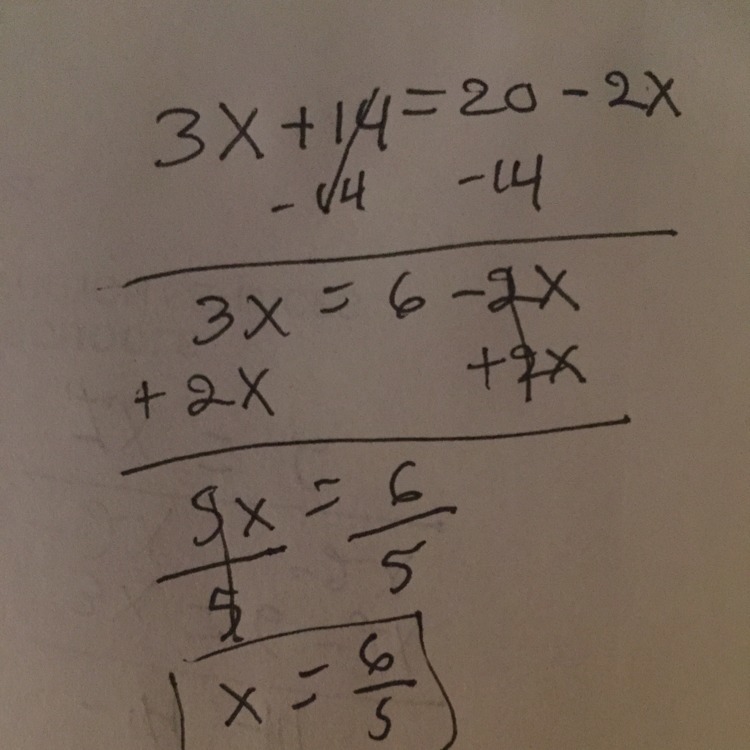 3x + 14 = 20 - 2x
- 14 - 14
3x = 6 - 2x
+ 2x + 2x
5x = 6
5 5
x = 6/5